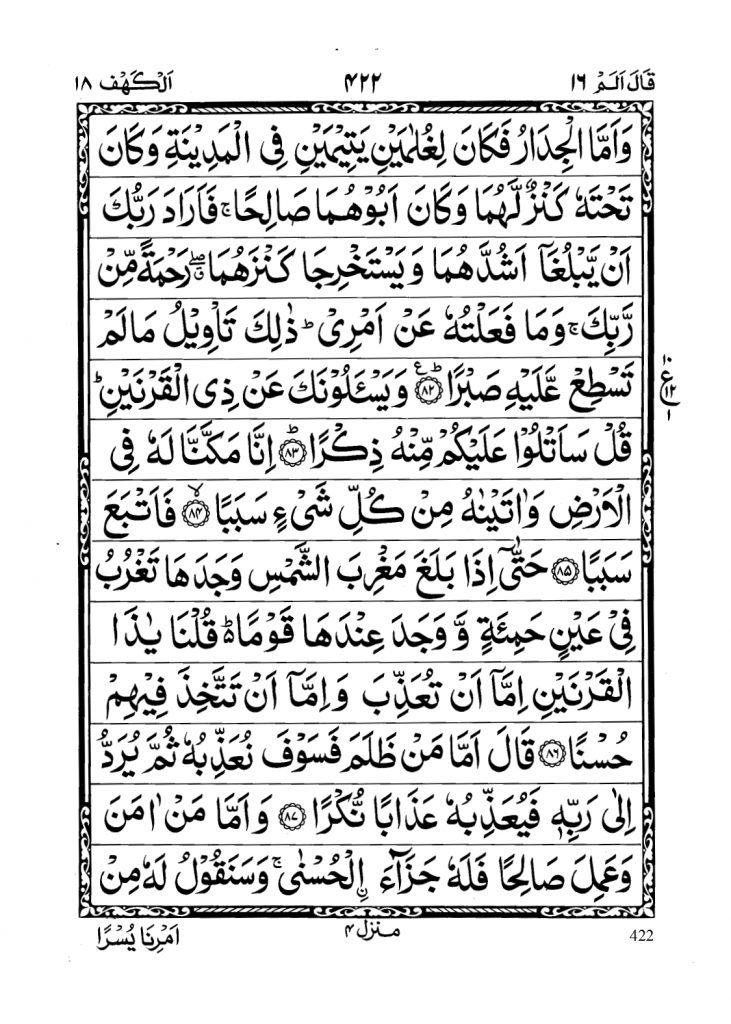 قَالَ اَلَمْ ١٦ ۴۲۲ اَلْكَهْف ١٨
وَاَمَّا الْجِدَارُ فَكَانَ لِغُلٰمَيْنِ يَتِيْمَيْنِ فِى الْمَدِيْنَةِ وَكَانَ
تَحْتَهٗ كَنْزٌ لَّهُمَا وَكَانَ اَبُوْهُمَا صَالِحًا ۚ فَاَرَادَ رَبُّكَ
اَنْ يَّبْلُغَاۤ اَشُدَّهُمَا وَيَسْتَخْرِجَا كَنْزَهُمَا ۖۗ رَحْمَةً مِّنْ
رَّبِّكَ ۚ وَمَا فَعَلْتُهٗ عَنْ اَمْرِىْ ؕ ذٰلِكَ تَاْوِيْلُ مَا لَمْ
تَسْطِعْ عَّلَيْهِ صَبْرًا ؕ ؏ ﴿۸۲﴾ وَيَسْـَٔلُوْنَكَ عَنْ ذِى الْقَرْنَيْنِ ؕ
١٠ ع ١٢ ١
قُلْ سَاَتْلُوْا عَلَيْكُمْ مِّنْهُ ذِكْرًا ؕ ﴿۸۳﴾ اِنَّا مَكَّنَّا لَهٗ فِى
الْاَرْضِ وَاٰتَيْنٰهُ مِنْ كُلِّ شَىْءٍ سَبَبًا ۙ ﴿۸۴﴾ فَاَتْبَعَ
سَبَبًا ﴿۸۵﴾ حَتّٰٓى اِذَا بَلَغَ مَغْرِبَ الشَّمْسِ وَجَدَهَا تَغْرُبُ
فِىْ عَيْنٍ حَمِئَةٍ وَّ وَجَدَ عِنْدَهَا قَوْمًا ؕ قُلْنَا يٰذَا
الْقَرْنَيْنِ اِمَّاۤ اَنْ تُعَذِّبَ وَاِمَّاۤ اَنْ تَتَّخِذَ فِيْهِمْ
حُسْنًا ﴿۸۶﴾ قَالَ اَمَّا مَنْ ظَلَمَ فَسَوْفَ نُعَذِّبُهٗ ثُمَّ يُرَدُّ
اِلٰى رَبِّهٖ فَيُعَذِّبُهٗ عَذَابًا نُّكْرًا ﴿۸۷﴾ وَاَمَّا مَنْ اٰمَنَ
وَعَمِلَ صَالِحًا فَلَهٗ جَزَآءَ اِۨلْحُسْنٰى ۚ وَسَنَقُوْلُ لَهٗ مِنْ
422 منزل ۴ اَمْرِنَا يُسْرًا